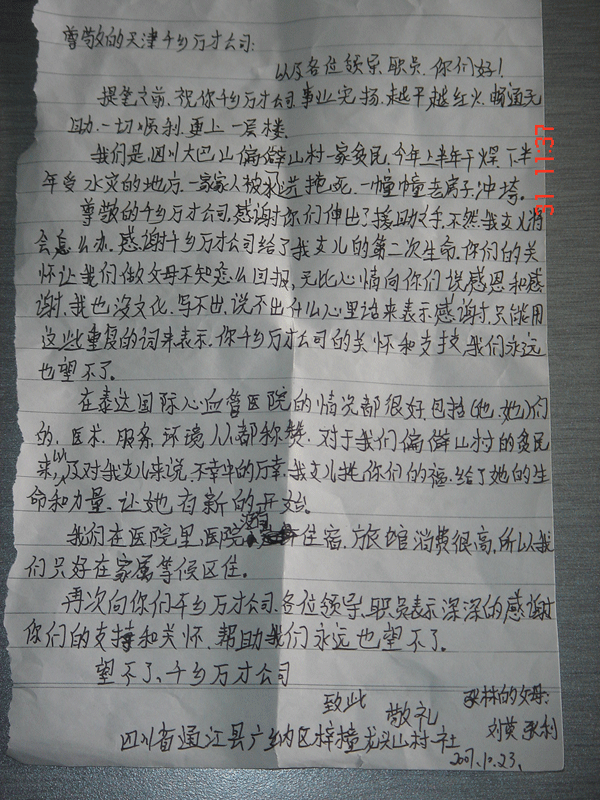 尊敬的天津千乡万才公司:
以及各位领导.职员.你们好!
提笔之前.祝你千乡万才公司事业宏扬.越干越红火.畅通无
助.一切顺利.更上一层楼.
我们是四川大巴山偏僻山村一家贫民.今年上半年干燥.下半
年受水灾的地方.一家家人被 掩死.一幢幢老房子冲垮。
尊敬的千乡万才公司.感谢你们伸出了援助之手.不然我女儿将
会怎么办.感谢千乡万才公司给了我女儿的第二次生命.你们的关
怀让我们做父母不知怎么回报.无比心情向你们说感恩和感
谢.我也没文化.写不出.说不出什么心里话来表示感谢.只能用
这些重复的词来表示.你千乡万才公司的关怀和支技.我们永远
也望不了。
在泰达国际心血管医院的情况都很好.包括(他.她)们
的.医术.服务.环境人人都称赞.对于我们偏僻山村的贫民
来以及对我女儿来说.不幸中的万幸.我女儿托你们的福.给了她的生
命和力量.让她有新的开始。
我们在医院里.医院没有住宿.旅馆消费很高.所以我
们只好在家属等候区住。
再次向你们千乡万才公司.各位领导.职员表示深深的感谢
你们的支持和关怀.帮助我们永远也望不了。
望不了、千乡万才公司
致此
敬礼
张林的父母:
刘英 张利
四川省通江县广纳区梓潼龙头山村一社
2007.10.23.
31 11:37